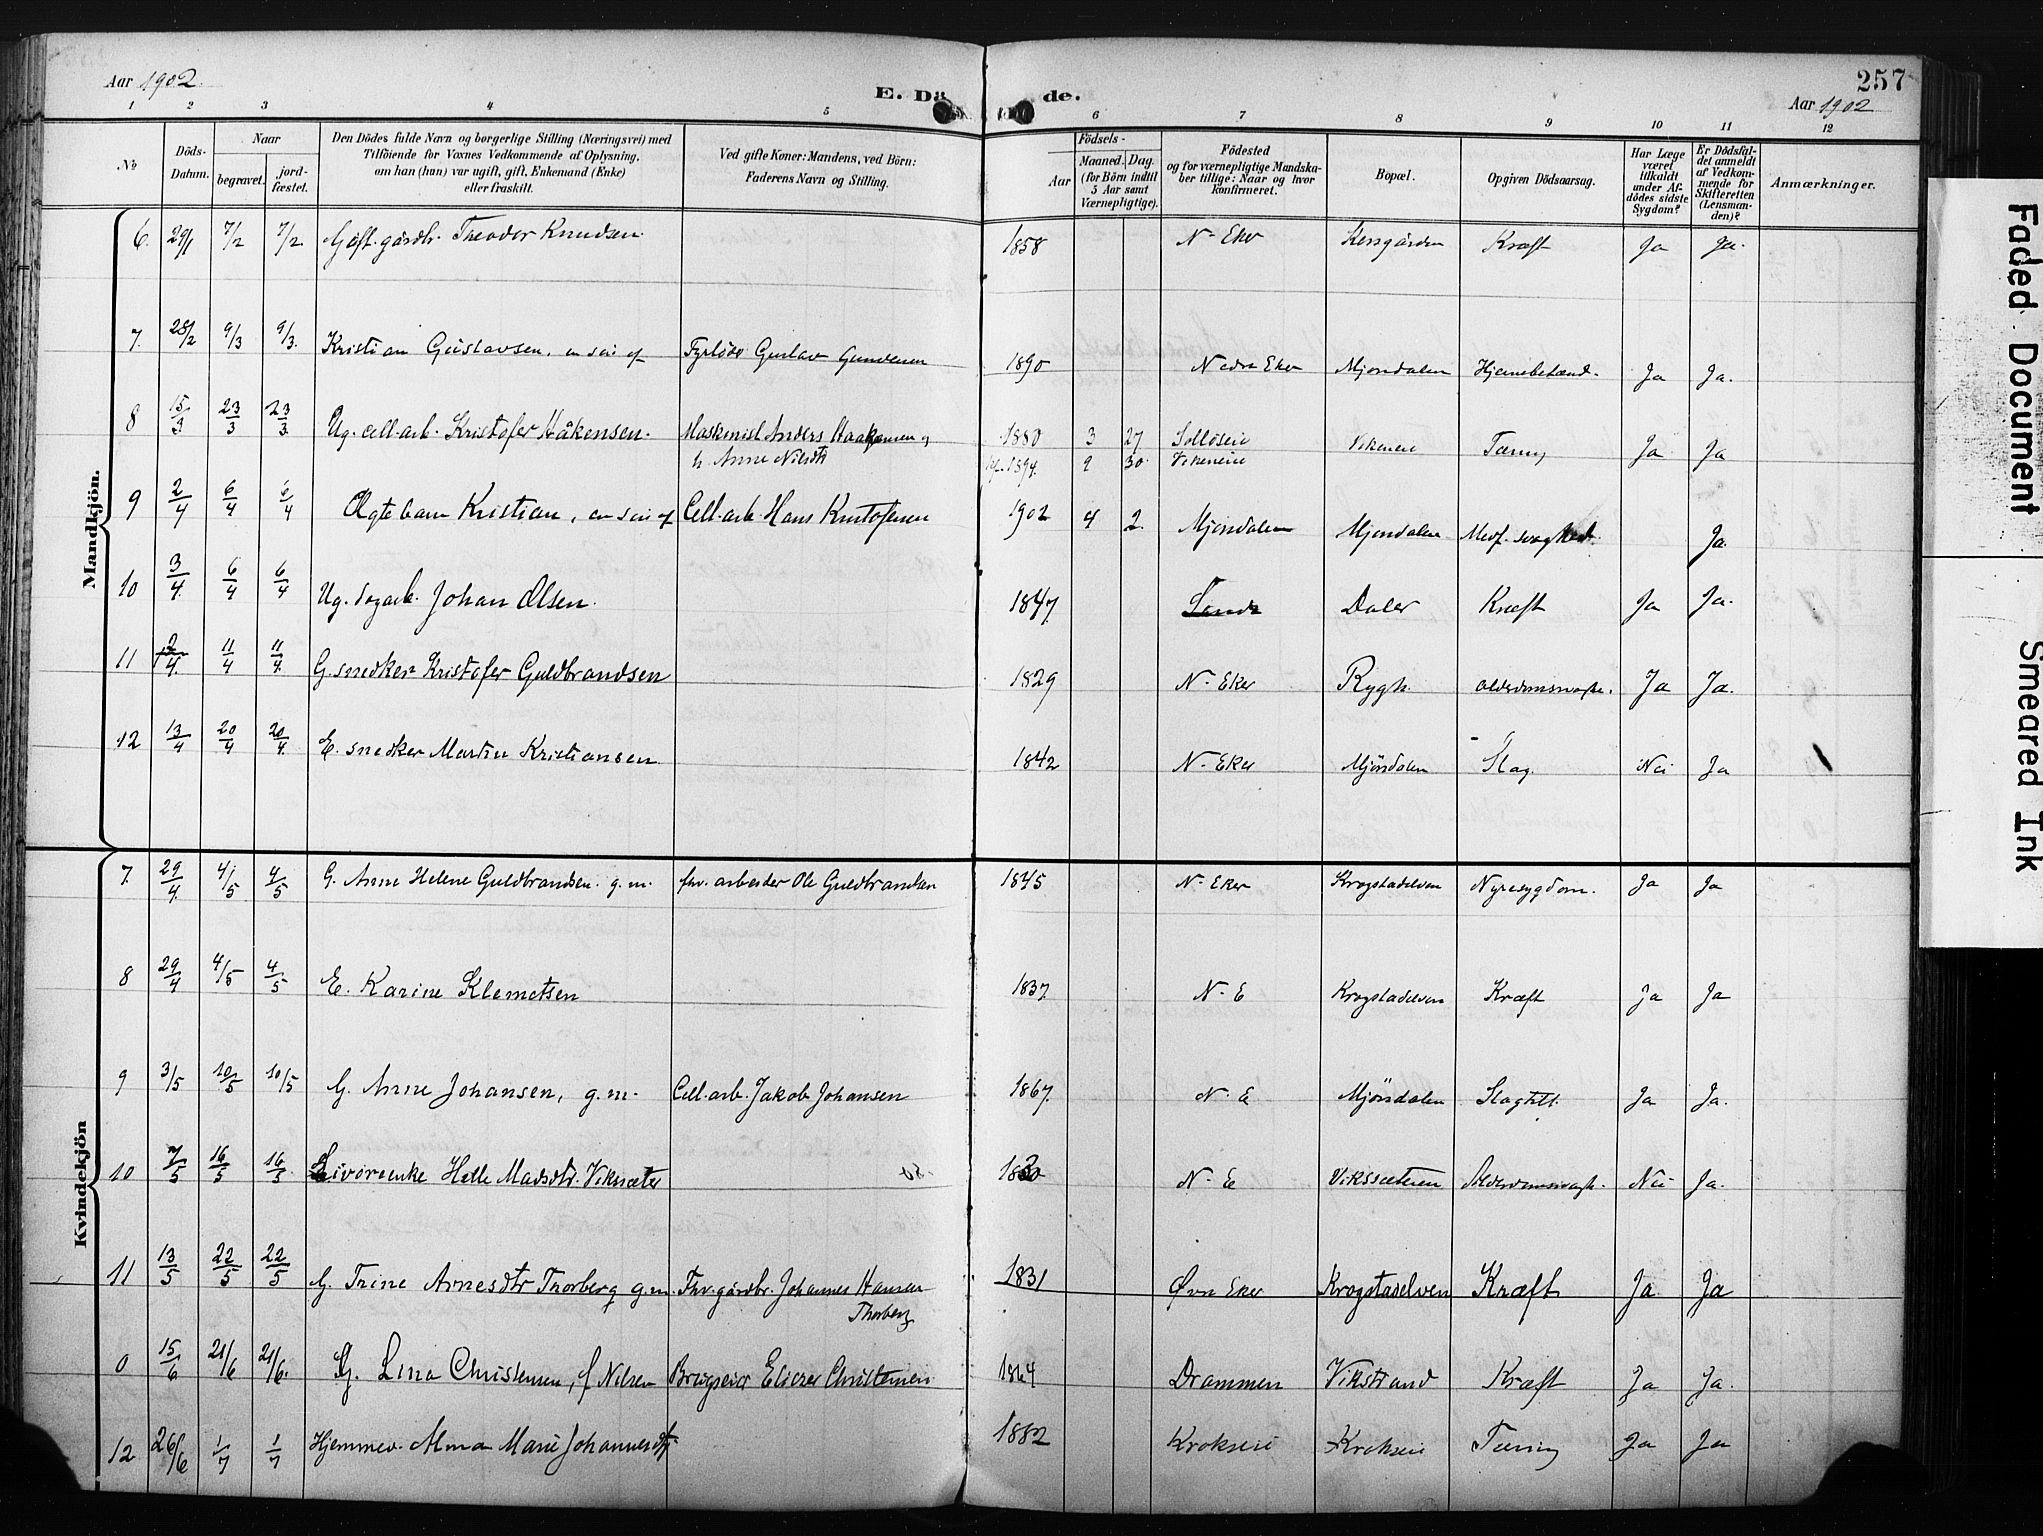 Aar 1902.
E. Dö de.
257
Aar 1902
1 2 3 4 5 6 7 8 9 10 11 12
No
Döds-Datum.
Naar
begravet.
jord-fæstet.
Den Dödes fulde Navn og borgerlige Stilling (Næringsvei) med
Tilföiende for Voxnes Vedkommende af Oplysning,
om han (hun) var ugift, gift, Enkemand (Enke)
eller fraskilt.
Ved gifte Koner: Mandens, ved Börn:
Faderens Navn og Stilling.
Födsels-
Aar
Maaned. Dag.
(for Börn indtil
5 Aar samt
Værnepligtige).
Födested
og for værnepligtige Mandska-
ber tillige: Naar og hvor
konfirmeret.
Bopæl.
Opgiven Dödsaarsag.
Har Læge
været
tilkaldt
under Af-
dödes sidste
Sygdom?
Er Dödsfal-
det anmeldt
af Vedkom-
mende for
Skifteretten
(Lensman-
den)?
Anmærkninger.
Mandkjön.
6. 29/1 7/2 7/2 Theodor Knudsen. 1858 N. Eker Kraft Ja Ja.
7. 28/2 9/3 9/3. Kristian Gustavsen, en sön af Gustav 1890 Nedre Eker Mjondalen Ja Ja.
8 15/3 23/3 23/3 Ug. cell. arb. Kristofer Håkensen. Maskinist Anders
h. Anne Nilsdtr 1880 3 27 Ja Ja
1894. 9 30.
9 2/4 6/4 6/4 Ægte barn Kristian, en sön af Cell. arb. Hans Kristofersen 1902 4 2. Mjondalen Mjondalen Medf. svaghed. Ja.
10 3/4 6/4 6/4 Ug. dagarb. Johan Olsen. 1847. Daler Kræft Ja Ja.
11 2/4. 11/4 11/4 G. snedker Kristofer Guldbrandsen 1829 N. Eker Rygh. Ja Ja.
12 13/4 20/4 20/4 E. snedker Martin Kristiansen 1842 N. Eker Mjöndalen Slag. Nei Ja
Kvindekjön
7. 29/4 4/5 4/5 G. Anne Helene Guldbrandsen. g. m. fhv. arbeider Ole Guldbrandsen 1845 N. Eker Krogstadelven Nyresygdom. Ja Ja
8 29/4 4/5 4/5 E. Karine Klemetsen 1837 N. E Krogstadelven Kræft Ja Ja
9 3/5 10/5 10/5 G. Anne Johansen, g. m. Cell. arb. Jakob Johansen 1867. N. E Mjöndalen Slagtilf. Ja Ja.
10 7/5 16/5 16/5 Helle Madsdtr. Viksæter N. E Vikssæteren Nei Ja.
11 13/5 22/5 22/5 G. Trine Arnesdtr Thorberg g. m. Fhv. gårdbr. Johannes Hansen
Thorberg 1831 Øvre Eker Krogstadelven Kræft Ja. Ja
0 15/6 21/6 21/6. G. Lina Christensen, f. Nilsen Eliezer Christensen 1864 Drammen Vikstrand Kræft Ja Ja.
12 26/6 1/7 1/7 Hjemmev. Alma Marie Johannesdtr. 1882 Krokseie Krokseie Tæring Ja Ja
Faded Document
Smeared Ink